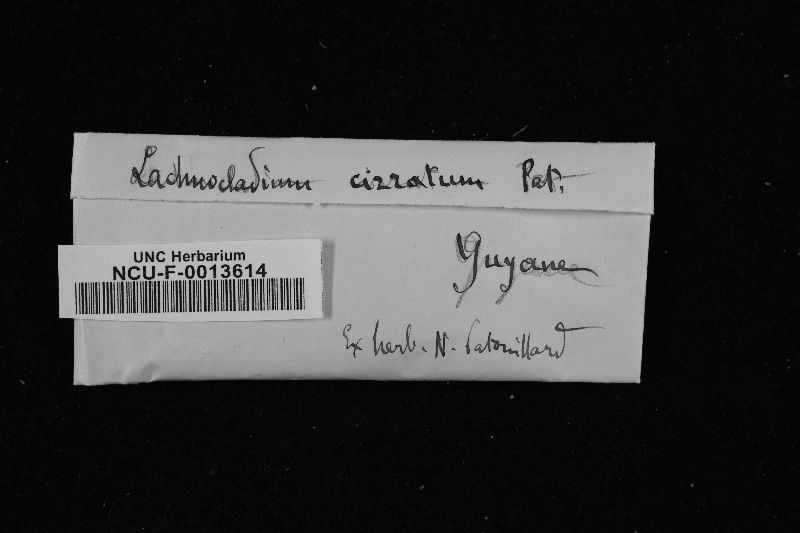 Lachnocladium cirratum Pat.
UNC Herbarium
NCU-F-0013614
Guyane
Ex herb. N. Patouillard